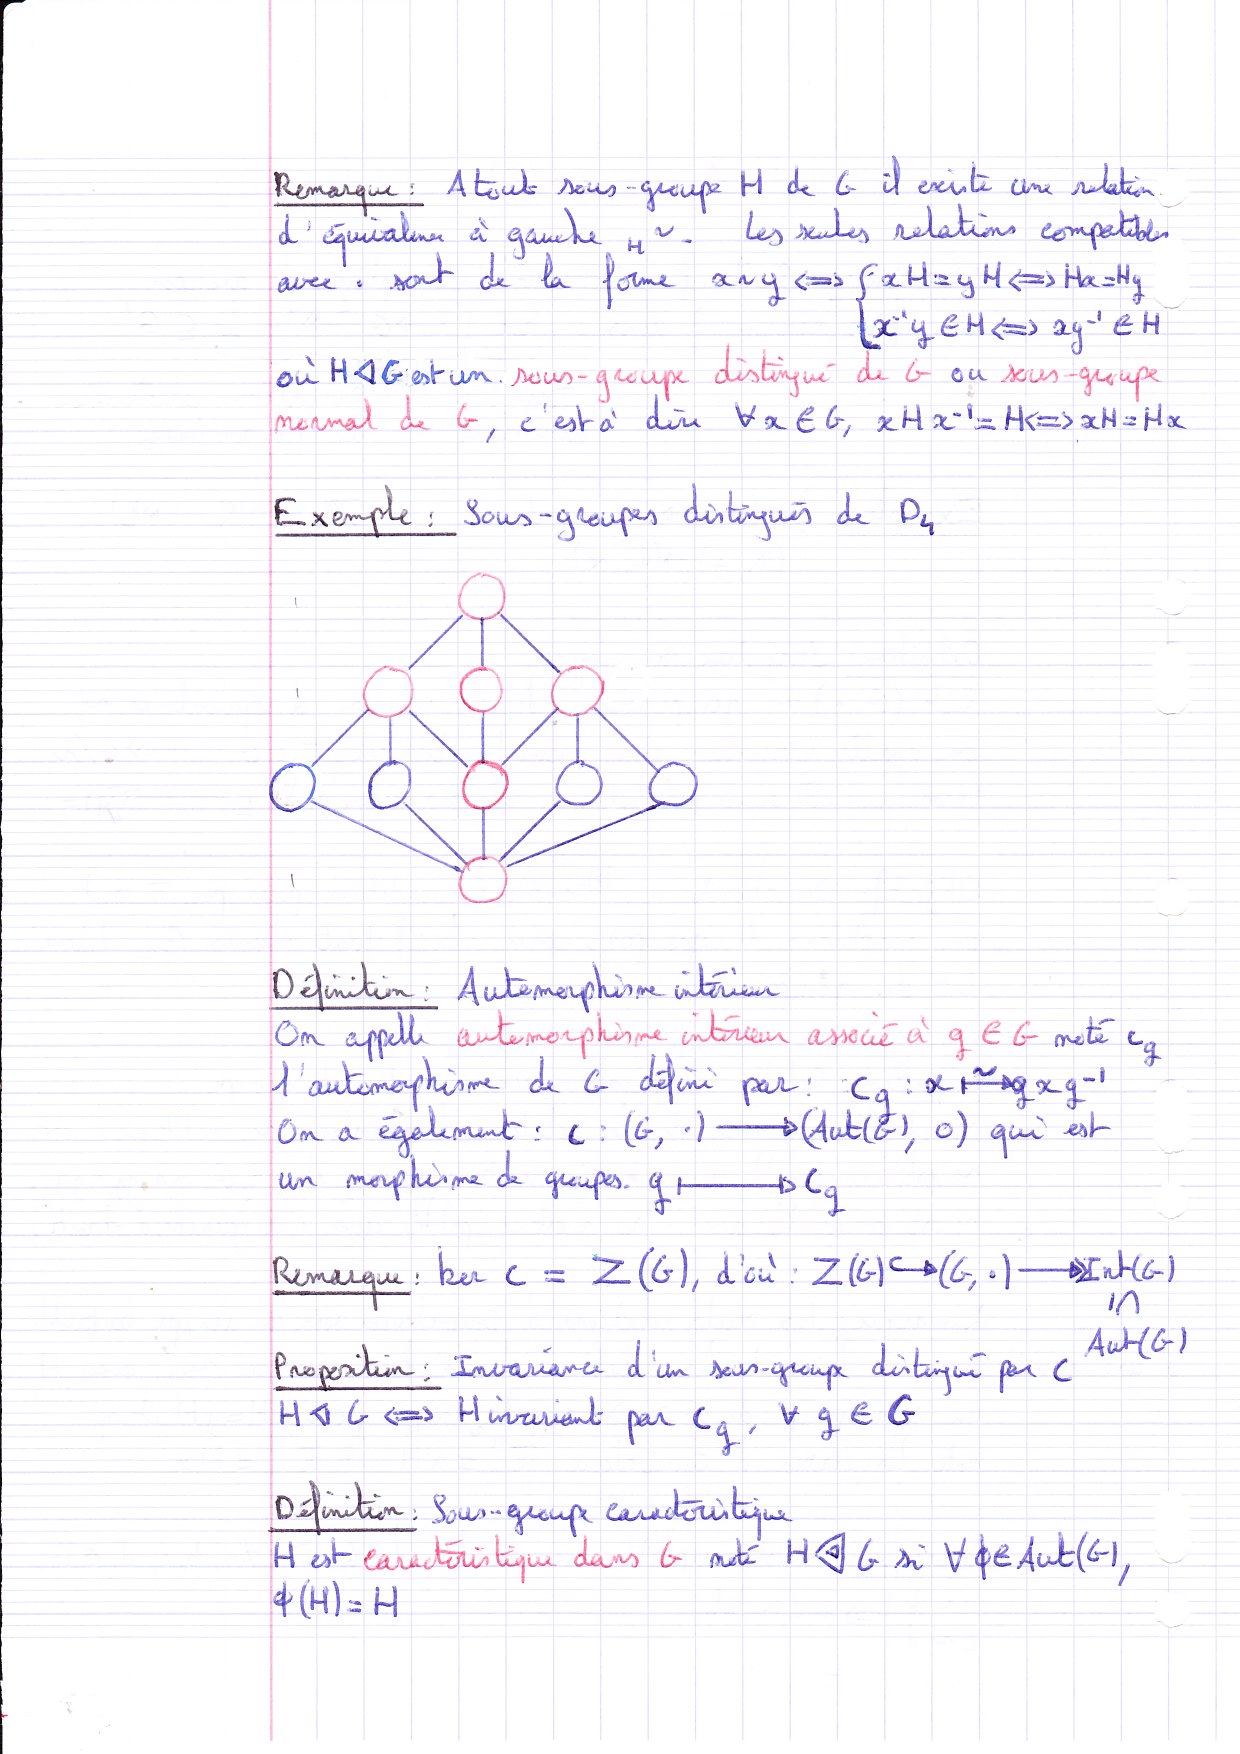 Remarque : A tout sous-groupe H de G il existe une relation
d'équivalence à gauche H~. Les seules relations compatibles
avec . sont de la forme x ~ y <=> { xH = yH <=> Hx = Hy
x⁻¹y ∈ H <=> xy⁻¹ ∈ H
où H ⊲ G est un sous-groupe distingué de G ou sous-groupe
normal de G, c'est à dire ∀ x ∈ G, xHx⁻¹ = H <=> xH = Hx
Exemple : Sous-groupes distingués de D₄
Définition : Automorphisme intérieur
On appelle automorphisme intérieur associé à g ∈ G noté c_g
l'automorphisme de G défini par : c_g : x ↦~ g x g⁻¹
On a également : c : (G, .) ⟶ (Aut(G), o) qui est
un morphisme de groupes. g ⟼ c_g
Remarque : ker c = Z(G), d'où : Z(G) ↪ (G, .) ↠ Int(G)
⊆
Aut(G)
Proposition : Invariance d'un sous-groupe distingué par c
H ⊲ G <=> H invariant par c_g, ∀ g ∈ G
Définition : Sous-groupe caractéristique
H est caractéristique dans G noté H ⊲ G si ∀ ϕ ∈ Aut(G),
ϕ(H) = H